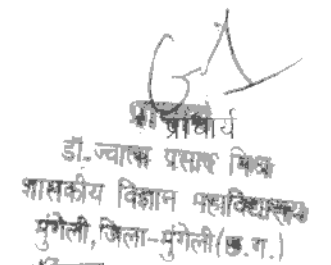 प्राचार्य
डॉ. ज्वाला प्रसाद मिश्र
शासकीय विज्ञान महाविद्यालय
मुंगेली, जिला-मुंगेली (छ.ग.)